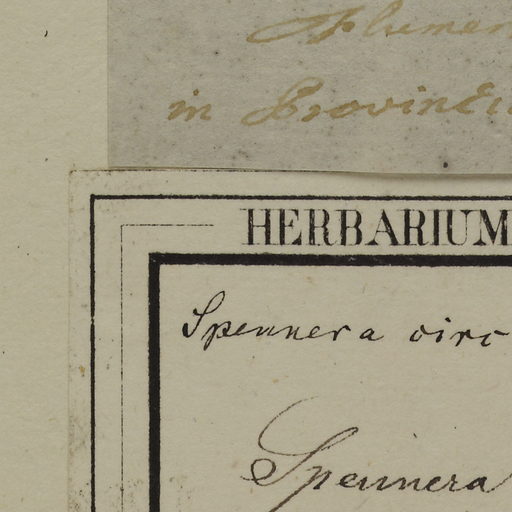 Flumen
in Provincia
HERBARIUM
Spennera circ
Spennera